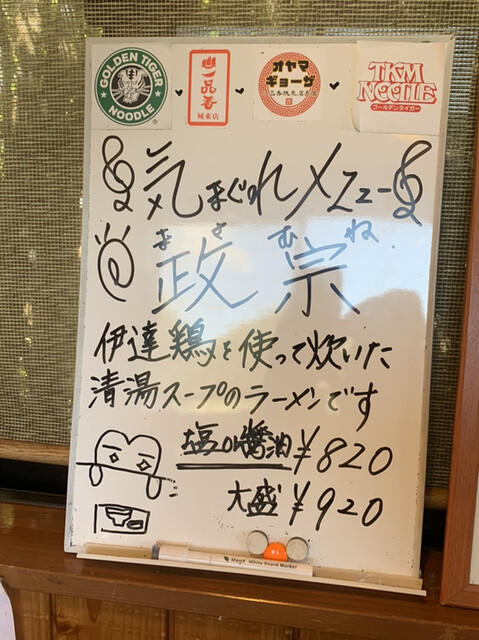 GOLDEN TIGER
NOODLE
一品香
城東店
オヤマ
ギョーザ
TKM
NOODLE
ゴールデンタイガー
気まぐれメニュー
まさむね
政宗
伊達鶏を使って炊いた
清湯スープのラーメンです
塩or醤油¥820
大盛¥920
MagX White Board Marker